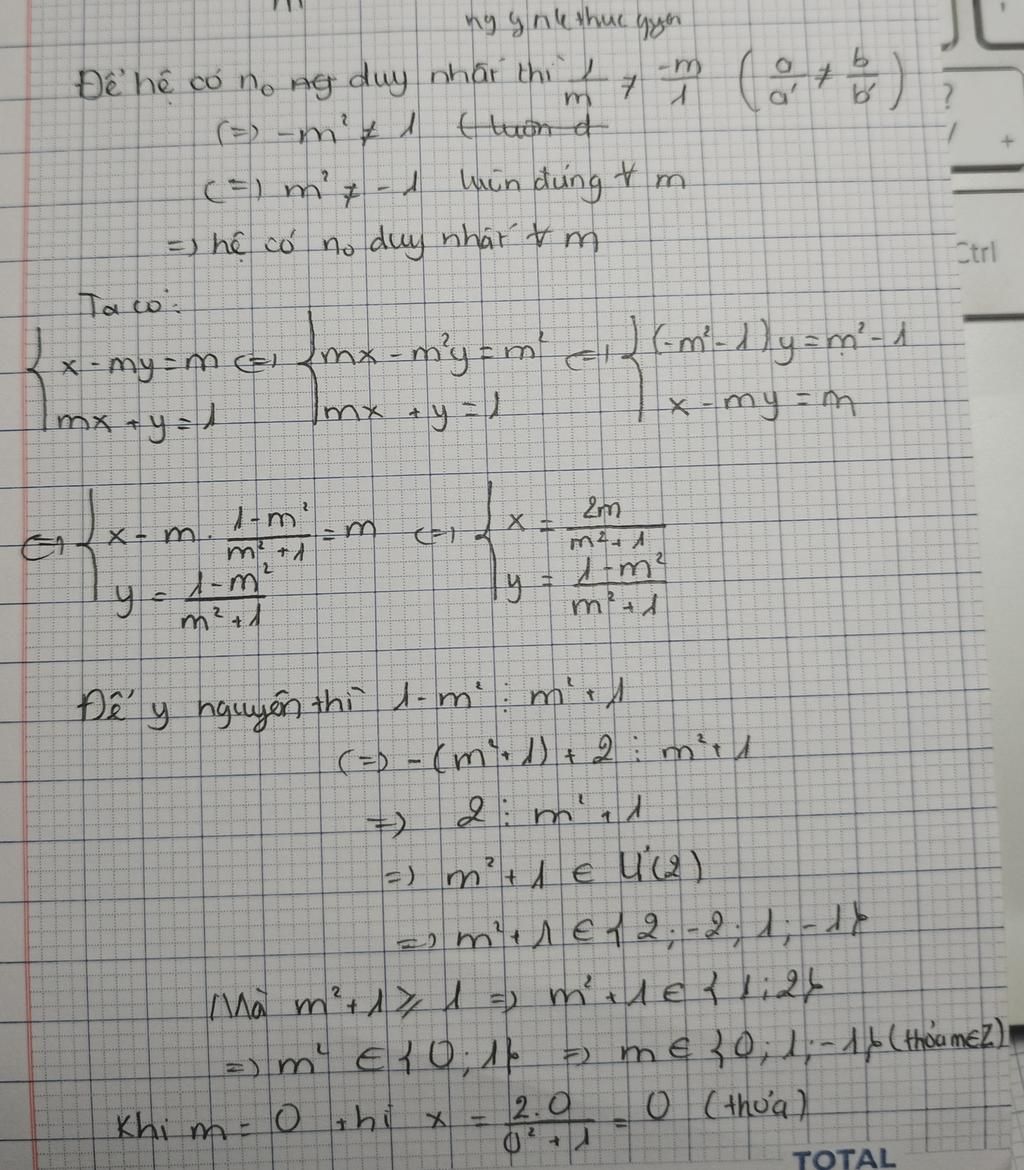 Để hệ có n₀ duy nhất thì 1/m ≠ -m/1 (a/a' ≠ b/b')
(=) -m² ≠ 1 (luôn đ
(=) m² ≠ -1 luôn đúng ∀ m
=) hệ có n₀ duy nhất ∀ m
Ta có:
{ x - my = m (=) { mx - m²y = m² (=) { (-m² - 1)y = m² - 1
mx + y = 1 mx + y = 1 x - my = m
(=) { x - m . (1 - m²)/(m² + 1) = m (=) { x = 2m/(m² + 1)
y = (1 - m²)/(m² + 1) y = (1 - m²)/(m² + 1)
Để y nguyên thì 1 - m² ⋮ m² + 1
(=) -(m² + 1) + 2 ⋮ m² + 1
=) 2 ⋮ m² + 1
=) m² + 1 ∈ Ư(2)
=) m² + 1 ∈ {2; -2; 1; -1}
Mà m² + 1 ≥ 1 =) m² + 1 ∈ {1; 2}
=) m² ∈ {0; 1} =) m ∈ {0; 1; -1} (thỏa m∈Z)
Khi m = 0 thì x = 2.0/(0² + 1) = 0 (thỏa)
?
/
+
Ctrl
TOTAL